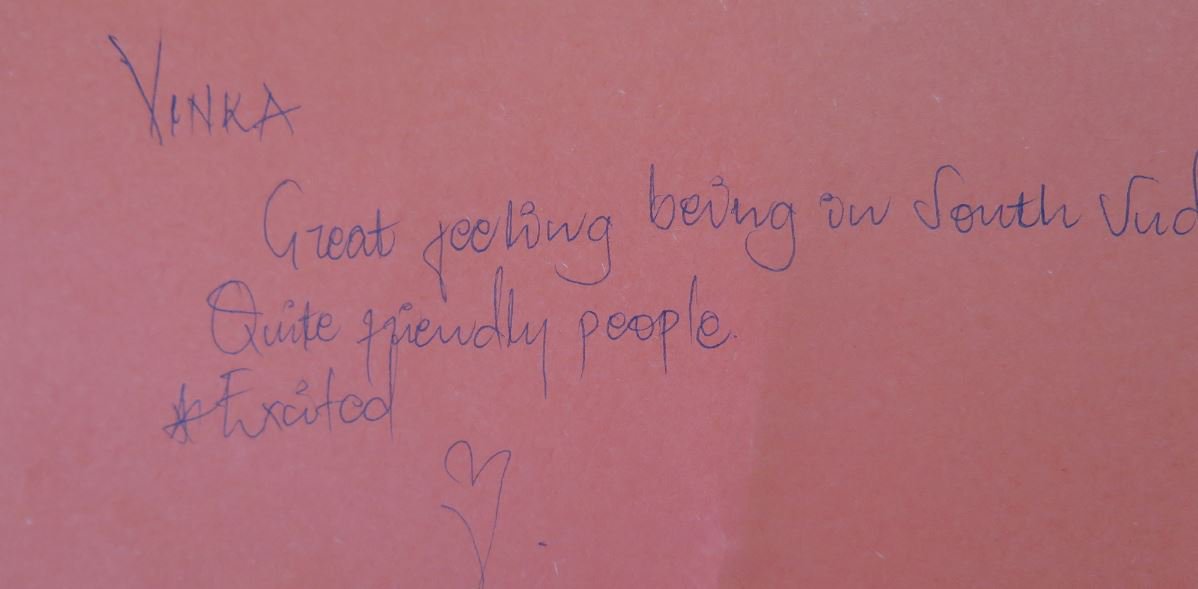 YINKA
Great feeling being in South Sud
Quite friendly people.
*Excited